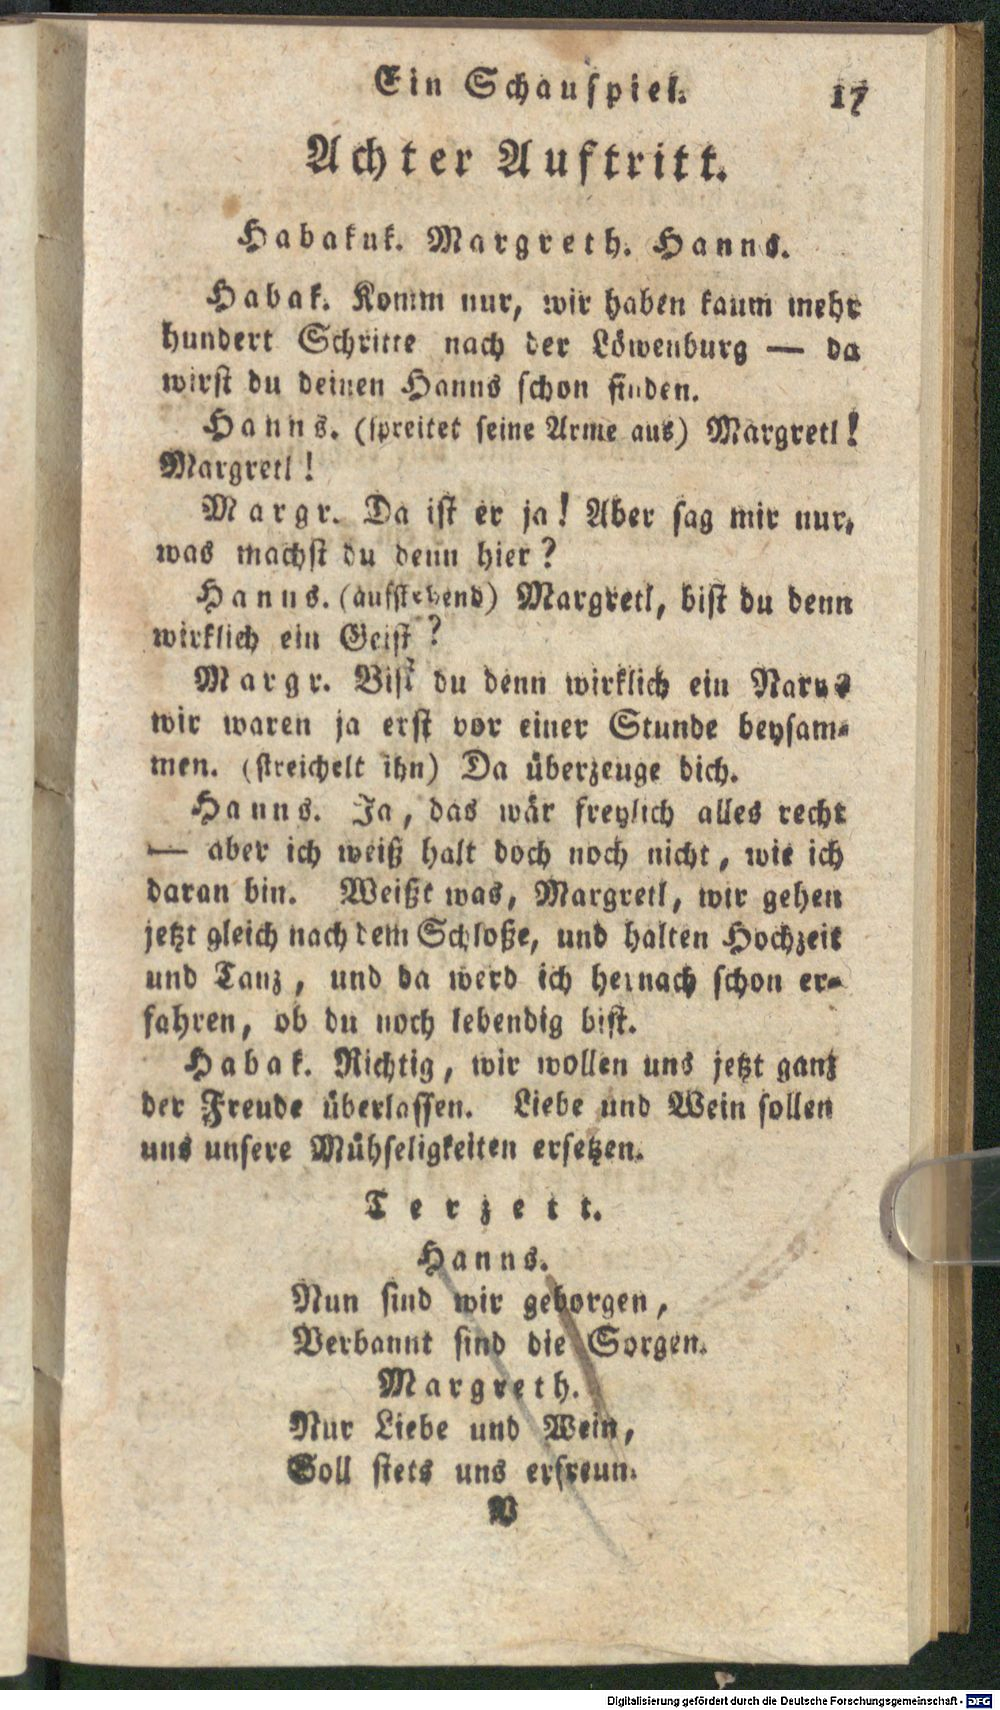 Ein Schauspiel. 17
Achter Auftritt.
Habakuk. Margreth. Hanns.
Habak. Komm nur, wir haben kaum mehr
hundert Schritte nach der Löwenburg — da
wirst du deinen Hanns schon finden.
Hanns. (spreitet seine Arme aus) Margretl!
Margretl!
Margr. Da ist er ja! Aber sag mir nur,
was machst du denn hier?
Hanns. (aufstehend) Margretl, bist du denn
wirklich ein Geist?
Margr. Bist du denn wirklich ein Narr?
wir waren ja erst vor einer Stunde beysam-
men. (streichelt ihn) Da überzeuge dich.
Hanns. Ja, das wär freylich alles recht
— aber ich weiß halt doch noch nicht, wie ich
daran bin. Weißt was, Margretl, wir gehen
jetzt gleich nach dem Schloße, und halten Hochzeit
und Tanz, und da werd ich hernach schon er-
fahren, ob du noch lebendig bist.
Habak. Richtig, wir wollen uns jetzt ganz
der Freude überlassen. Liebe und Wein sollen
uns unsere Mühseligkeiten ersetzen.
Terzett.
Hanns.
Nun sind wir geborgen,
Verbannt sind die Sorgen.
Margreth.
Nur Liebe und Wein,
Soll stets uns erfreun.
Digitalisierung gefördert durch die Deutsche Forschungsgemeinschaft - DFG